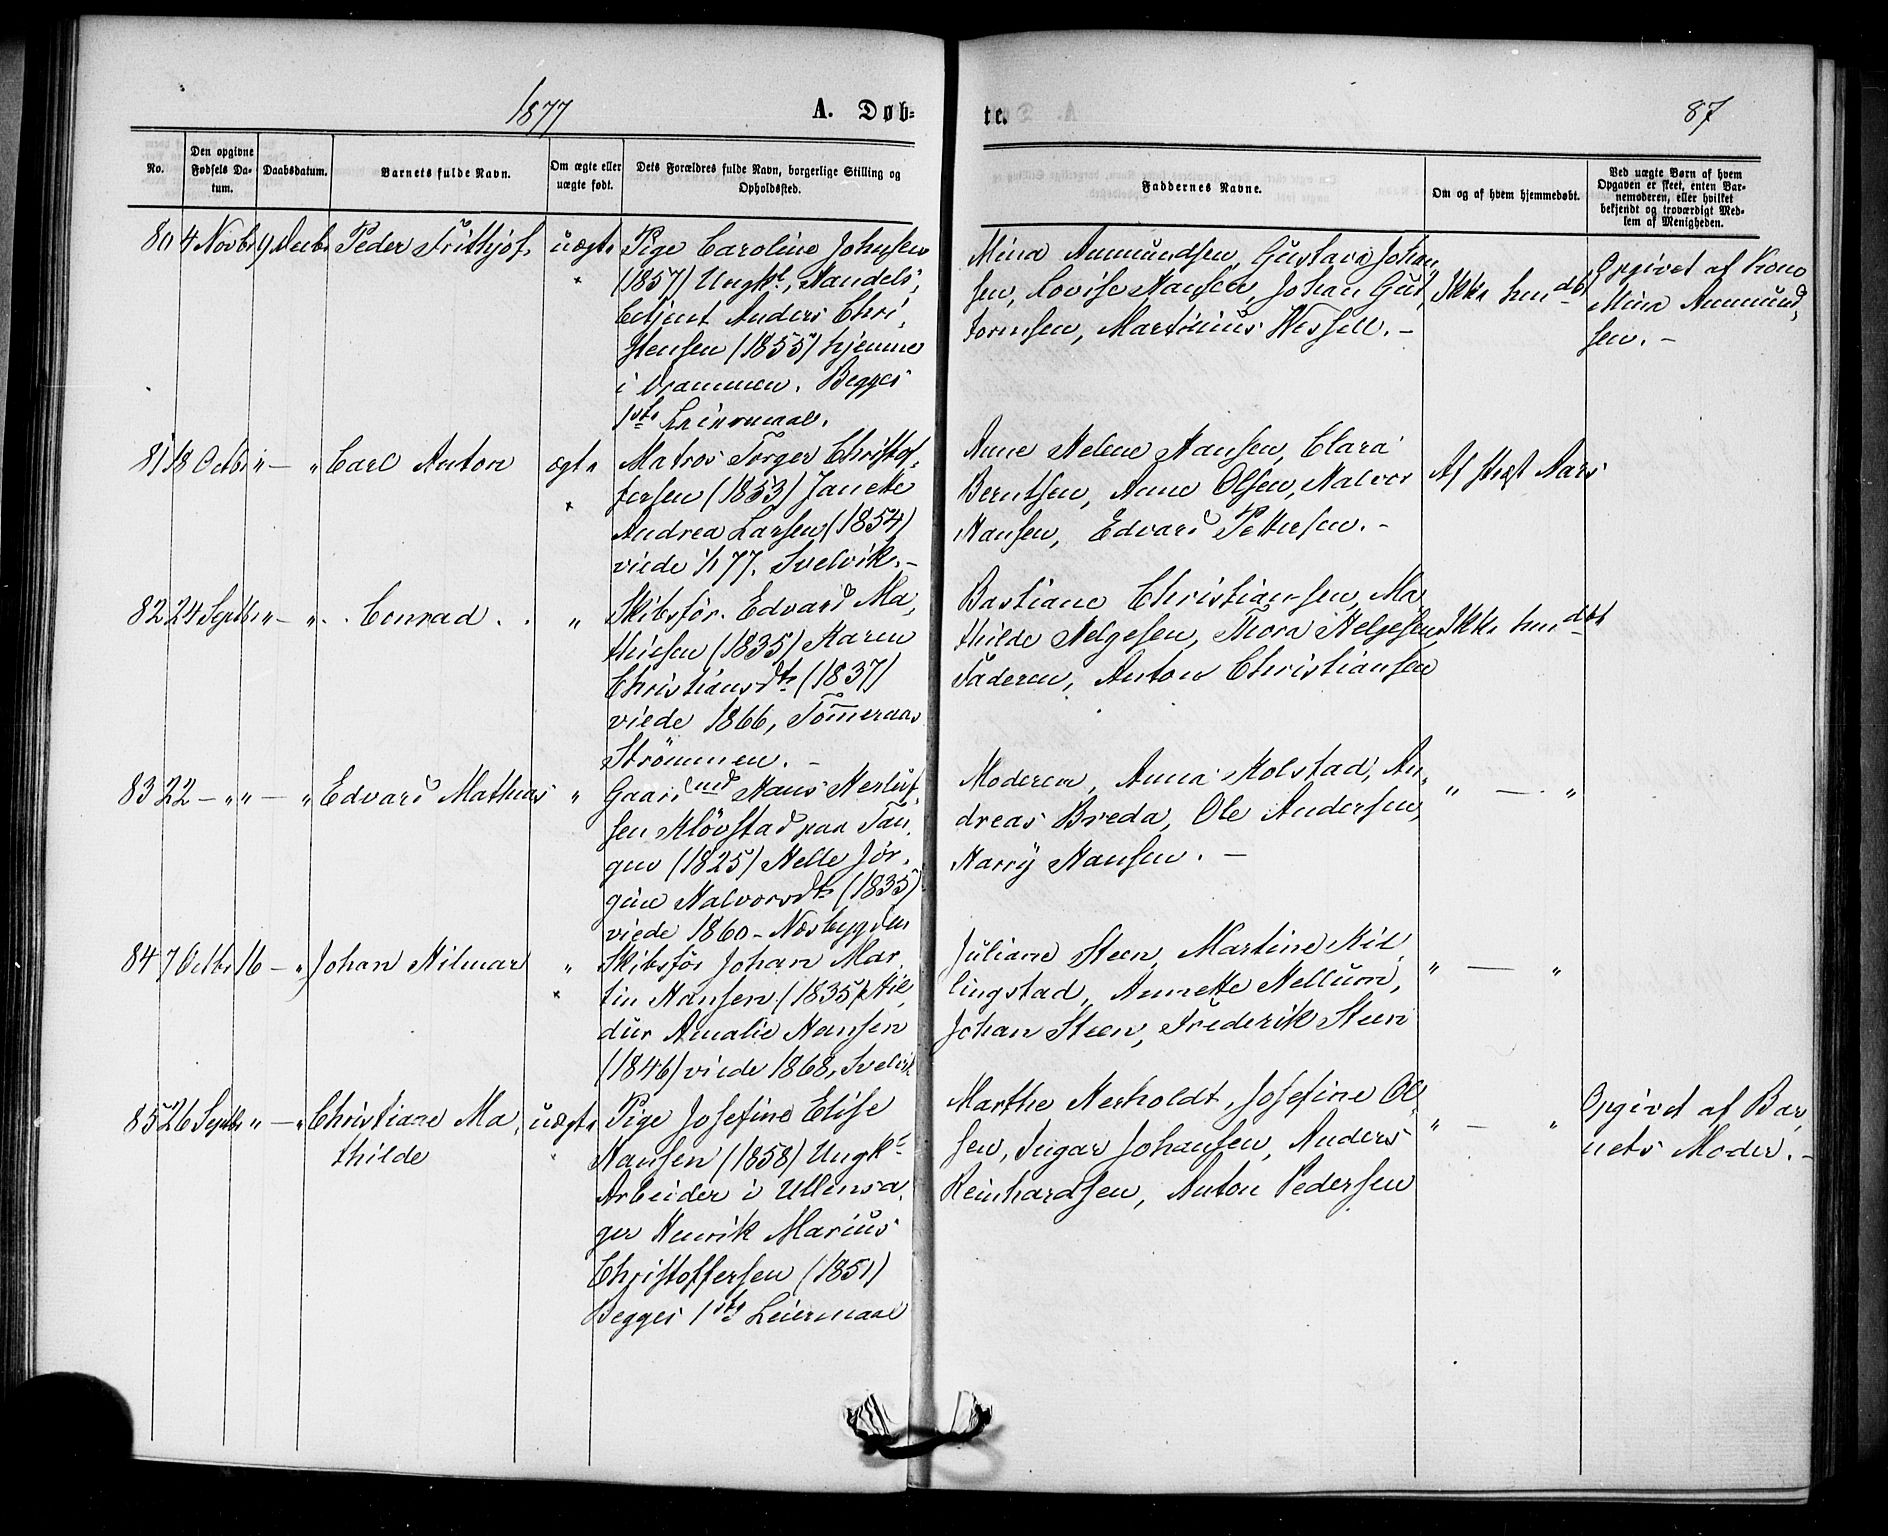 1877
A. Døb-
te.
87
No.
Den opgivne
Fødsels Da-
tum.
Daabsdatum.
Barnets fulde Navn.
Om ægte eller
uægte født.
Dets Forældres fulde Navn, borgerlige Stilling og
Opholdssted.
Faddernes Navne.
Om og af hvem hjemmedøbt.
Ved uægte Børn af hvem
Opgaven er skeet, enten Bar-
nemoderen, eller hvilket
bekjendt og troværdigt Med-
lem af Menigheden.
80 4 Novbr 9 Decbr Peder Frithjof. uægte
Pige Caroline Johnsen
(1857) Ungk^l, Handels,
betjent Anders Chri,
stensen (1855) hjemme
i Drammen. Begges
1ste Leiermaal.
Mina Aumundsen, Gustava Johan
sen, Lovise Hansen, Johan Gut,
tormsen, Martinius Wessell. –
Ikke hmdbt
Opgivet af Kone
Mina Aumund,
sen. –
81 18 Octbr " – " Carl Anton ægte
Matros Torger Christof,
fersen (1853) Janette
Andrea Larsen (1854)
viede 1/1 77. Svelvik. –
Anne Helene Hansen, Clara
Berntsen, Anne Olsen, Halvor
Hansen, Edvard Pettersen. –
Af Præst Aars
82 24 Septbr " – " Conrad "
Skibsfør. Edvard Ma,
thisen (1835) Karen
Christiansdtr (1837)
viede 1866, Tømeraas
Strømmen. –
Bastiane Christiansen, Ma
thilde Helgesen, Thora Helgesen
Faderen, Anton Christiansen
Ikke hmdbt
83 22 – " " – " Edvard Mathias "
Gaardmd Hans Herluf,
sen Kløvstad paa Tan,
gen (1825) Helle Jør,
gine Halvorsdtr (1835)
viede 1860 – Næsbygden
Moderen, Anna Kolstad, An
dreas Breda, Ole Andersen,
Harry Hansen. –
" – "
84 7 Octbr 16 – " Johan Hilmar "
Skibsfør Johan Mar,
tin Hansen (1835) Hil,
dur Amalie Hansen
(1846) viede 1868, Svelvik
Juliane Steen, Martine Kil,
lingstad, Annette Hellum,
Johan Steen, Frederik Steen
" – "
85 26 Septbr " – " Christiane Ma, uægte
thilde
Pige Josefine Elise
Hansen (1858) Ungk^l
Arbeider i Ullensa,
ger Henrik Marius
Christoffersen (1851)
Begges 1ste Leiermaal
Marthe Nerholdt, Josefine Ol
sen, Ingar Johansen, Anders
Reinhardsen, Anton Pedersen
" – "
Opgivet af Bar,
nets Moder. –